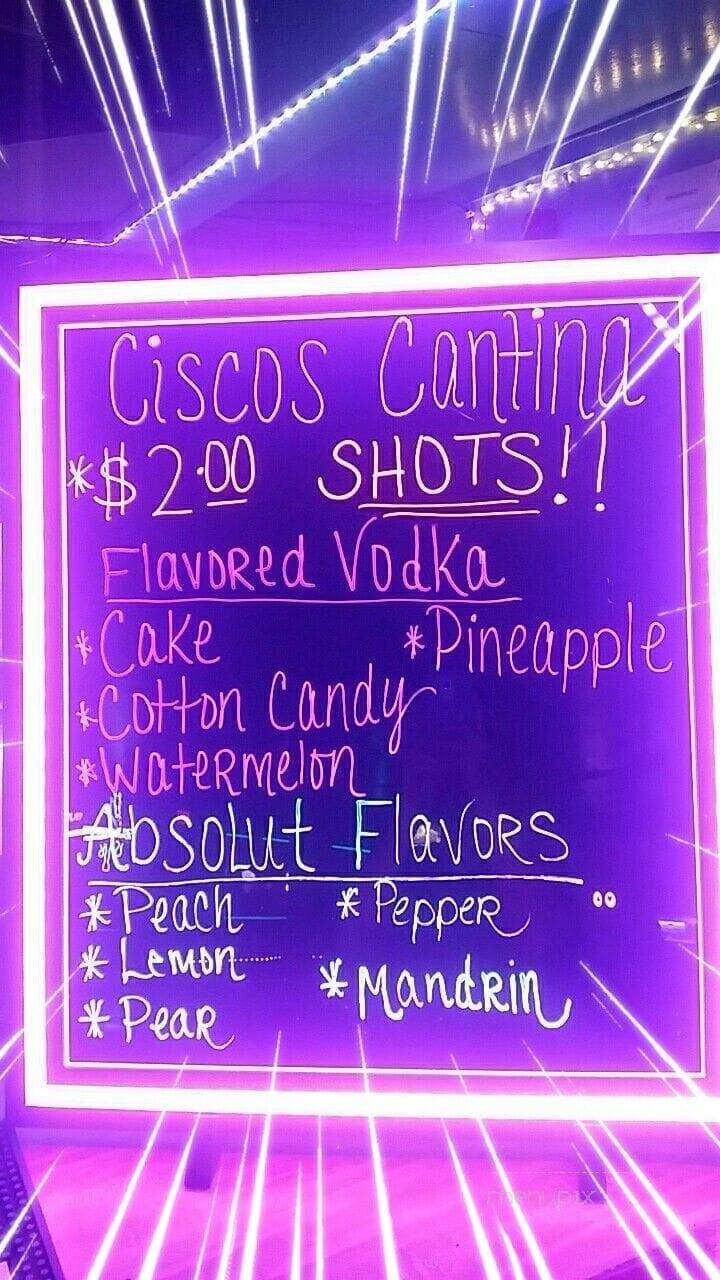 Ciscos Cantina
*$2.00 SHOTS!!
Flavored Vodka
*Cake *Pineapple
*Cotton Candy
*Watermelon
Absolut Flavors
*Peach *Pepper
*Lemon *Mandrin
*Pear
menupix